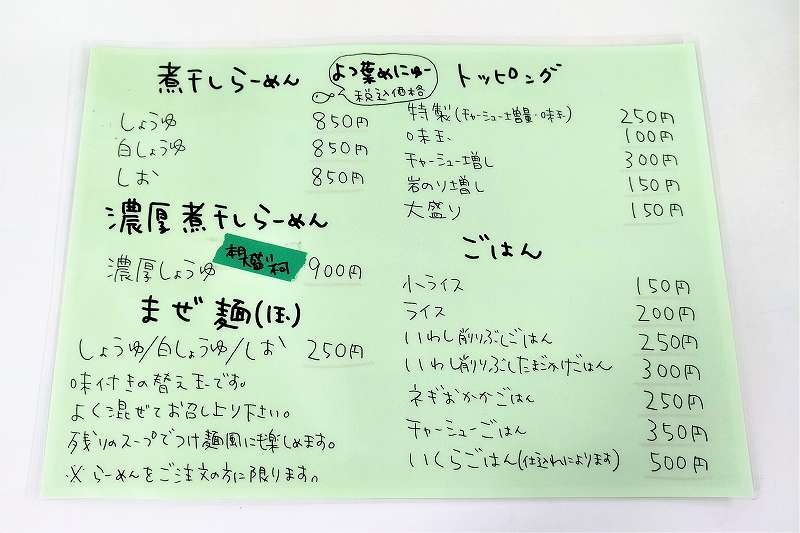 よつ葉めにゅー
税込価格
煮干しらーめん
しょうゆ 850円
白しょうゆ 850円
しお 850円
濃厚煮干しらーめん
濃厚しょうゆ 900円
まぜ麺(ほ)
しょうゆ/白しょうゆ/しお 250円
味付きの替え玉です。
よく混ぜてお召し上り下さい。
残りのスープでつけ麺風にも楽しめます。
※らーめんをご注文の方に限ります。
トッピング
特製(チャーシュー増量・味玉) 250円
味玉 100円
チャーシュー増し 300円
岩のり増し 150円
大盛り 150円
ごはん
小ライス 150円
ライス 200円
いわし削りぶしごはん 250円
いわし削りぶしたまごかけごはん 300円
ネギおかかごはん 250円
チャーシューごはん 350円
いくらごはん(仕込れによります) 500円